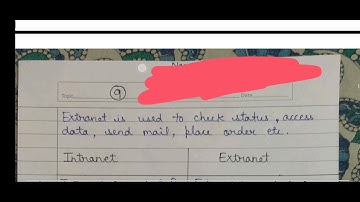 Topic
9
Date
Extranet is used to check status, access
data, send mail, place order etc.
Intranet
Extranet